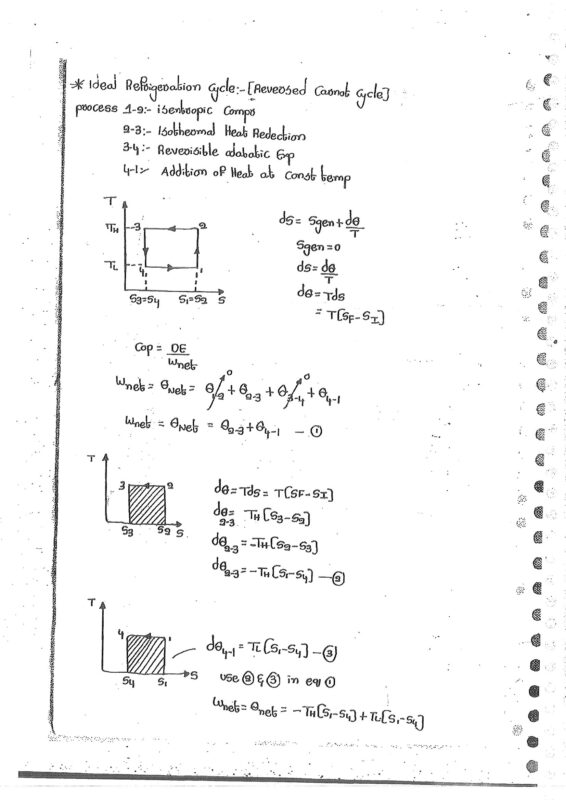 * Ideal Refrigeration Cycle:-[Reversed Carnot Cycle]
process 1-2:- isentropic Comp
2-3:- Isothermal Heat Redection
3-4:- Reversible adabatic Exp
4-1:- Addition of Heat at Const temp
T
TH 3 2
TL 4 1
S3=S4 S1=S2 S
dS = Sgen + dθ/T
Sgen = 0
dS = dθ/T
dθ = Tds
= T[SF-SI]
Cop = DE/Wnet
Wnet = θNet = θ1-2 0 + θ2-3 + θ3-4 0 + θ4-1
Wnet = θNet = θ2-3 + θ4-1 — ①
T
3 2
S3 S2 S
dθ = Tds = T[SF-SI]
dθ2-3 = TH[S3-S2]
dθ2-3 = -TH[S2-S3]
dθ2-3 = -TH[S1-S4] — ②
T
4 1
S4 S1 S
dθ4-1 = TL[S1-S4] — ③
use ② & ③ in eq ①
Wnet = θnet = -TH[S1-S4] + TL[S1-S4]